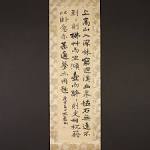 上高山入深林窮迴溪幽泉怪石無遠不
到則披草而坐傾壺而醉則更相枕
以臥意有所極夢亦同趣